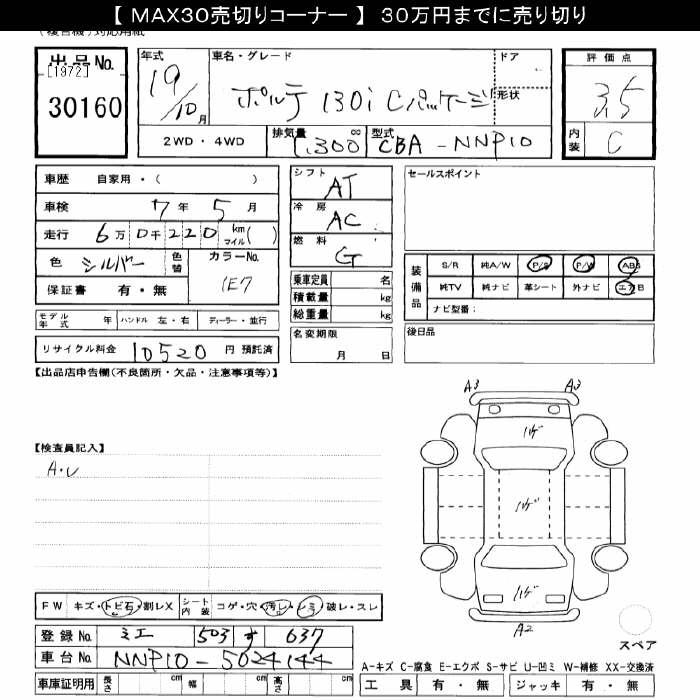 【 MAX30売切りコーナー 】 30万円までに売り切り
(複合機)対応用紙
出品No.
[1972]
30160
年式
19/10月
車名・グレード
ポルテ 130i Cパッケージ
ドア
形状
2WD・4WD
排気量
1300 cc
型式
CBA-NNP10
評価点
3.5
内装
C
車歴 自家用・( )
車検 17年 5月
走行 6万0千220 km マイル( )
色 シルバー 色替 カラーNo.
1E7
保証書 有・無
モデル年式 年 ハンドル 左・右 ディーラー・並行
リサイクル料金 10520 円 預託済
シフト
AT
冷房
AC
燃料
G
乗車定員 名
積載量 kg
総重量 kg
名変期限
月 日
セールスポイント
装備品
S/R 純A/W P/S P/W ABS
純TV 純ナビ 革シート 外ナビ エアB
ナビ型番:
後日品
【出品店申告欄(不良箇所・欠品・注意事項等)】
【検査員記入】
A・U
A3 A3
ハゲ
ハゲ
ハゲ
A2
スペア
FW キズ・トビ石・割レX シート内装 コゲ・穴・汚レ・シミ・破レ・スレ
登録No. ミエ 503 す 637
車台No. NNP10-5024144
車庫証明用 長さ cm 幅 cm 高さ cm
A-キズ C-腐食 E-エクボ S-サビ U-凹ミ W-補修 XX-交換済
工具 有・無 ジャッキ 有・無